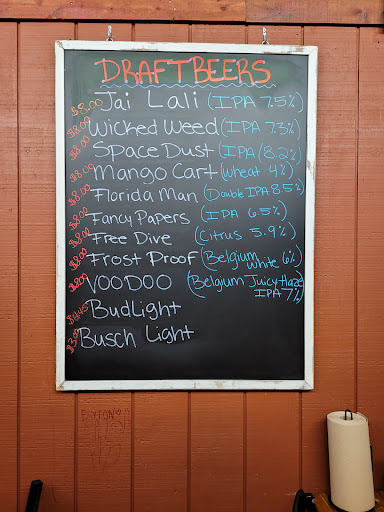 DRAFT BEERS
$8.00 Jai Lali (IPA 7.5%)
$8.00 Wicked Weed (IPA 7.3%)
$8.00 Space Dust (IPA (8.2%)
$8.00 Mango Cart (Wheat 4%)
$8.00 Florida Man (Double IPA 8.5%)
$8.00 Fancy Papers (IPA 6.5%)
$8.00 Free Dive (Citrus 5.9%)
$8.00 Frost Proof (Belgium White 6%)
$8.00 VOODOO (Belgium Juicy-Haze
IPA 7%)
BudLight
$3.00 Busch Light